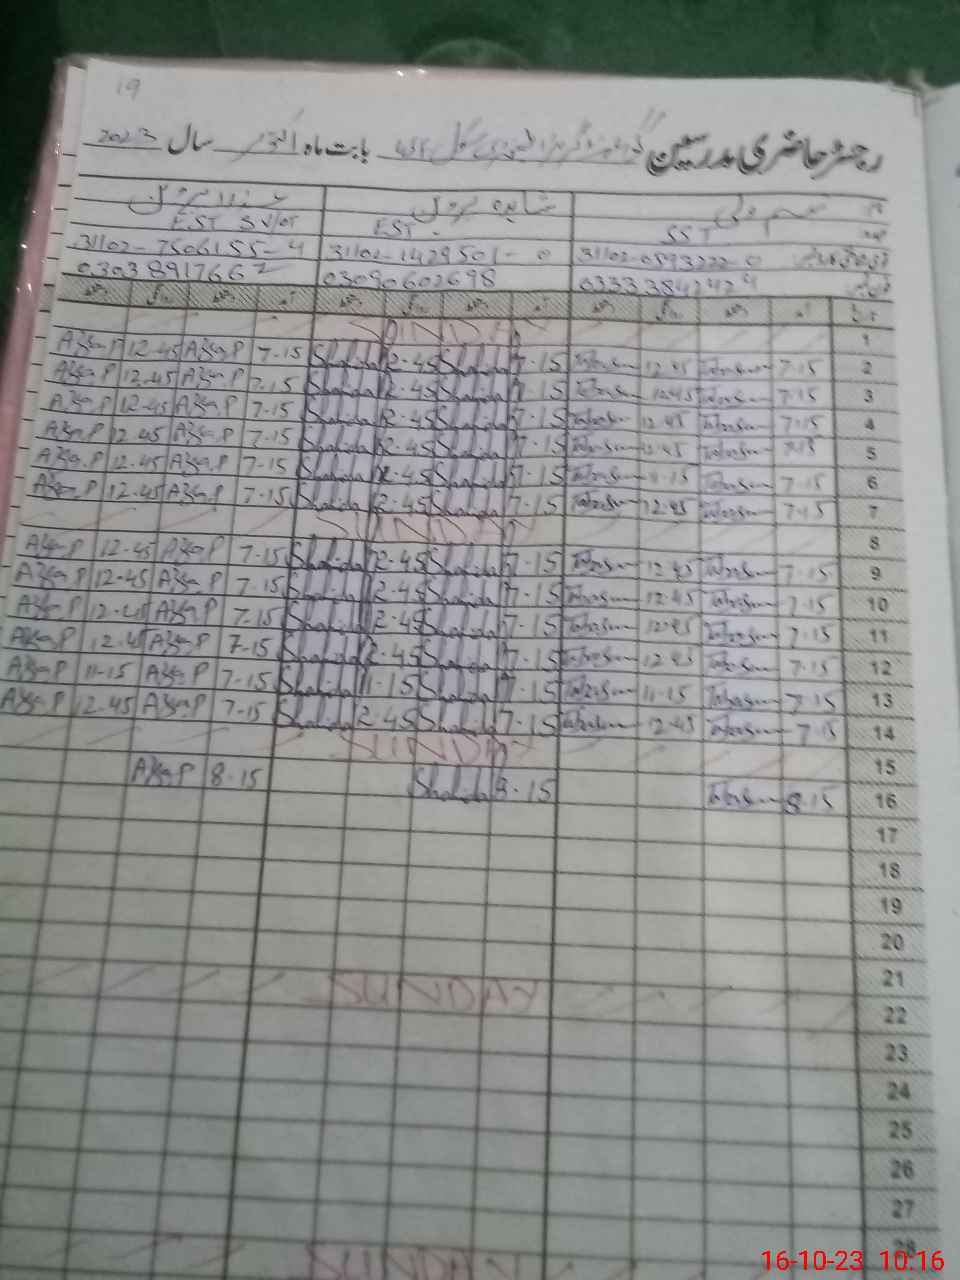 19
رجسٹر حاضری مدرسین بابت ماہ اکتوبر سال 2023
SST EST EST
31102-0593222-0 31102-1429501-0 31102-7506155-4
03090602698 03038917667
SUNDAY 1
Azra.P 12.45 Azra.P 7-15 Shahida 12-45 Shahida 7-15 Tabassum 12.45 Tabassum 7.15 2
Azra.P 12.45 Azra.P 7-15 Shahida 12-45 Shahida 7-15 Tabassum 12.45 Tabassum 7.15 3
Azra.P 12.45 Azra.P 7-15 Shahida 12-45 Shahida 7-15 Tabassum 12.45 Tabassum 7.15 4
Azra.P 12.45 Azra.P 7-15 Shahida 12-45 Shahida 7-15 Tabassum 12.45 Tabassum 7.15 5
Azra.P 12.45 Azra.P 7-15 Shahida 12-45 Shahida 7-15 Tabassum 11.15 Tabassum 7.15 6
Azra.P 12.45 Azra.P 7-15 Shahida 12-45 Shahida 7-15 Tabassum 12.45 Tabassum 7.15 7
SUNDAY 8
Azra.P 12-45 Azra.P 7-15 Shahida 12-45 Shahida 7-15 Tabassum 12.45 Tabassum 7.15 9
Azra.P 12-45 Azra.P 7-15 Shahida 12-45 Shahida 7-15 Tabassum 12.45 Tabassum 7.15 10
Azra.P 12-45 Azra.P 7-15 Shahida 12-45 Shahida 7-15 Tabassum 12.45 Tabassum 7.15 11
Azra.P 12-45 Azra.P 7-15 Shahida 12-45 Shahida 7-15 Tabassum 12.45 Tabassum 7.15 12
Azra.P 11-15 Azra.P 7-15 Shahida 11-15 Shahida 7-15 Tabassum 11-15 Tabassum 7.15 13
Azra.P 12.45 Azra.P 7-15 Shahida 12-45 Shahida 7-15 Tabassum 12-45 Tabassum 7.15 14
SUNDAY 15
Azra.P 8-15 Shahida 8-15 Tabassum 8.15 16
17
18
19
20
21
SUNDAY 22
23
24
25
26
27
SUNDAY 28
16-10-23 10:16